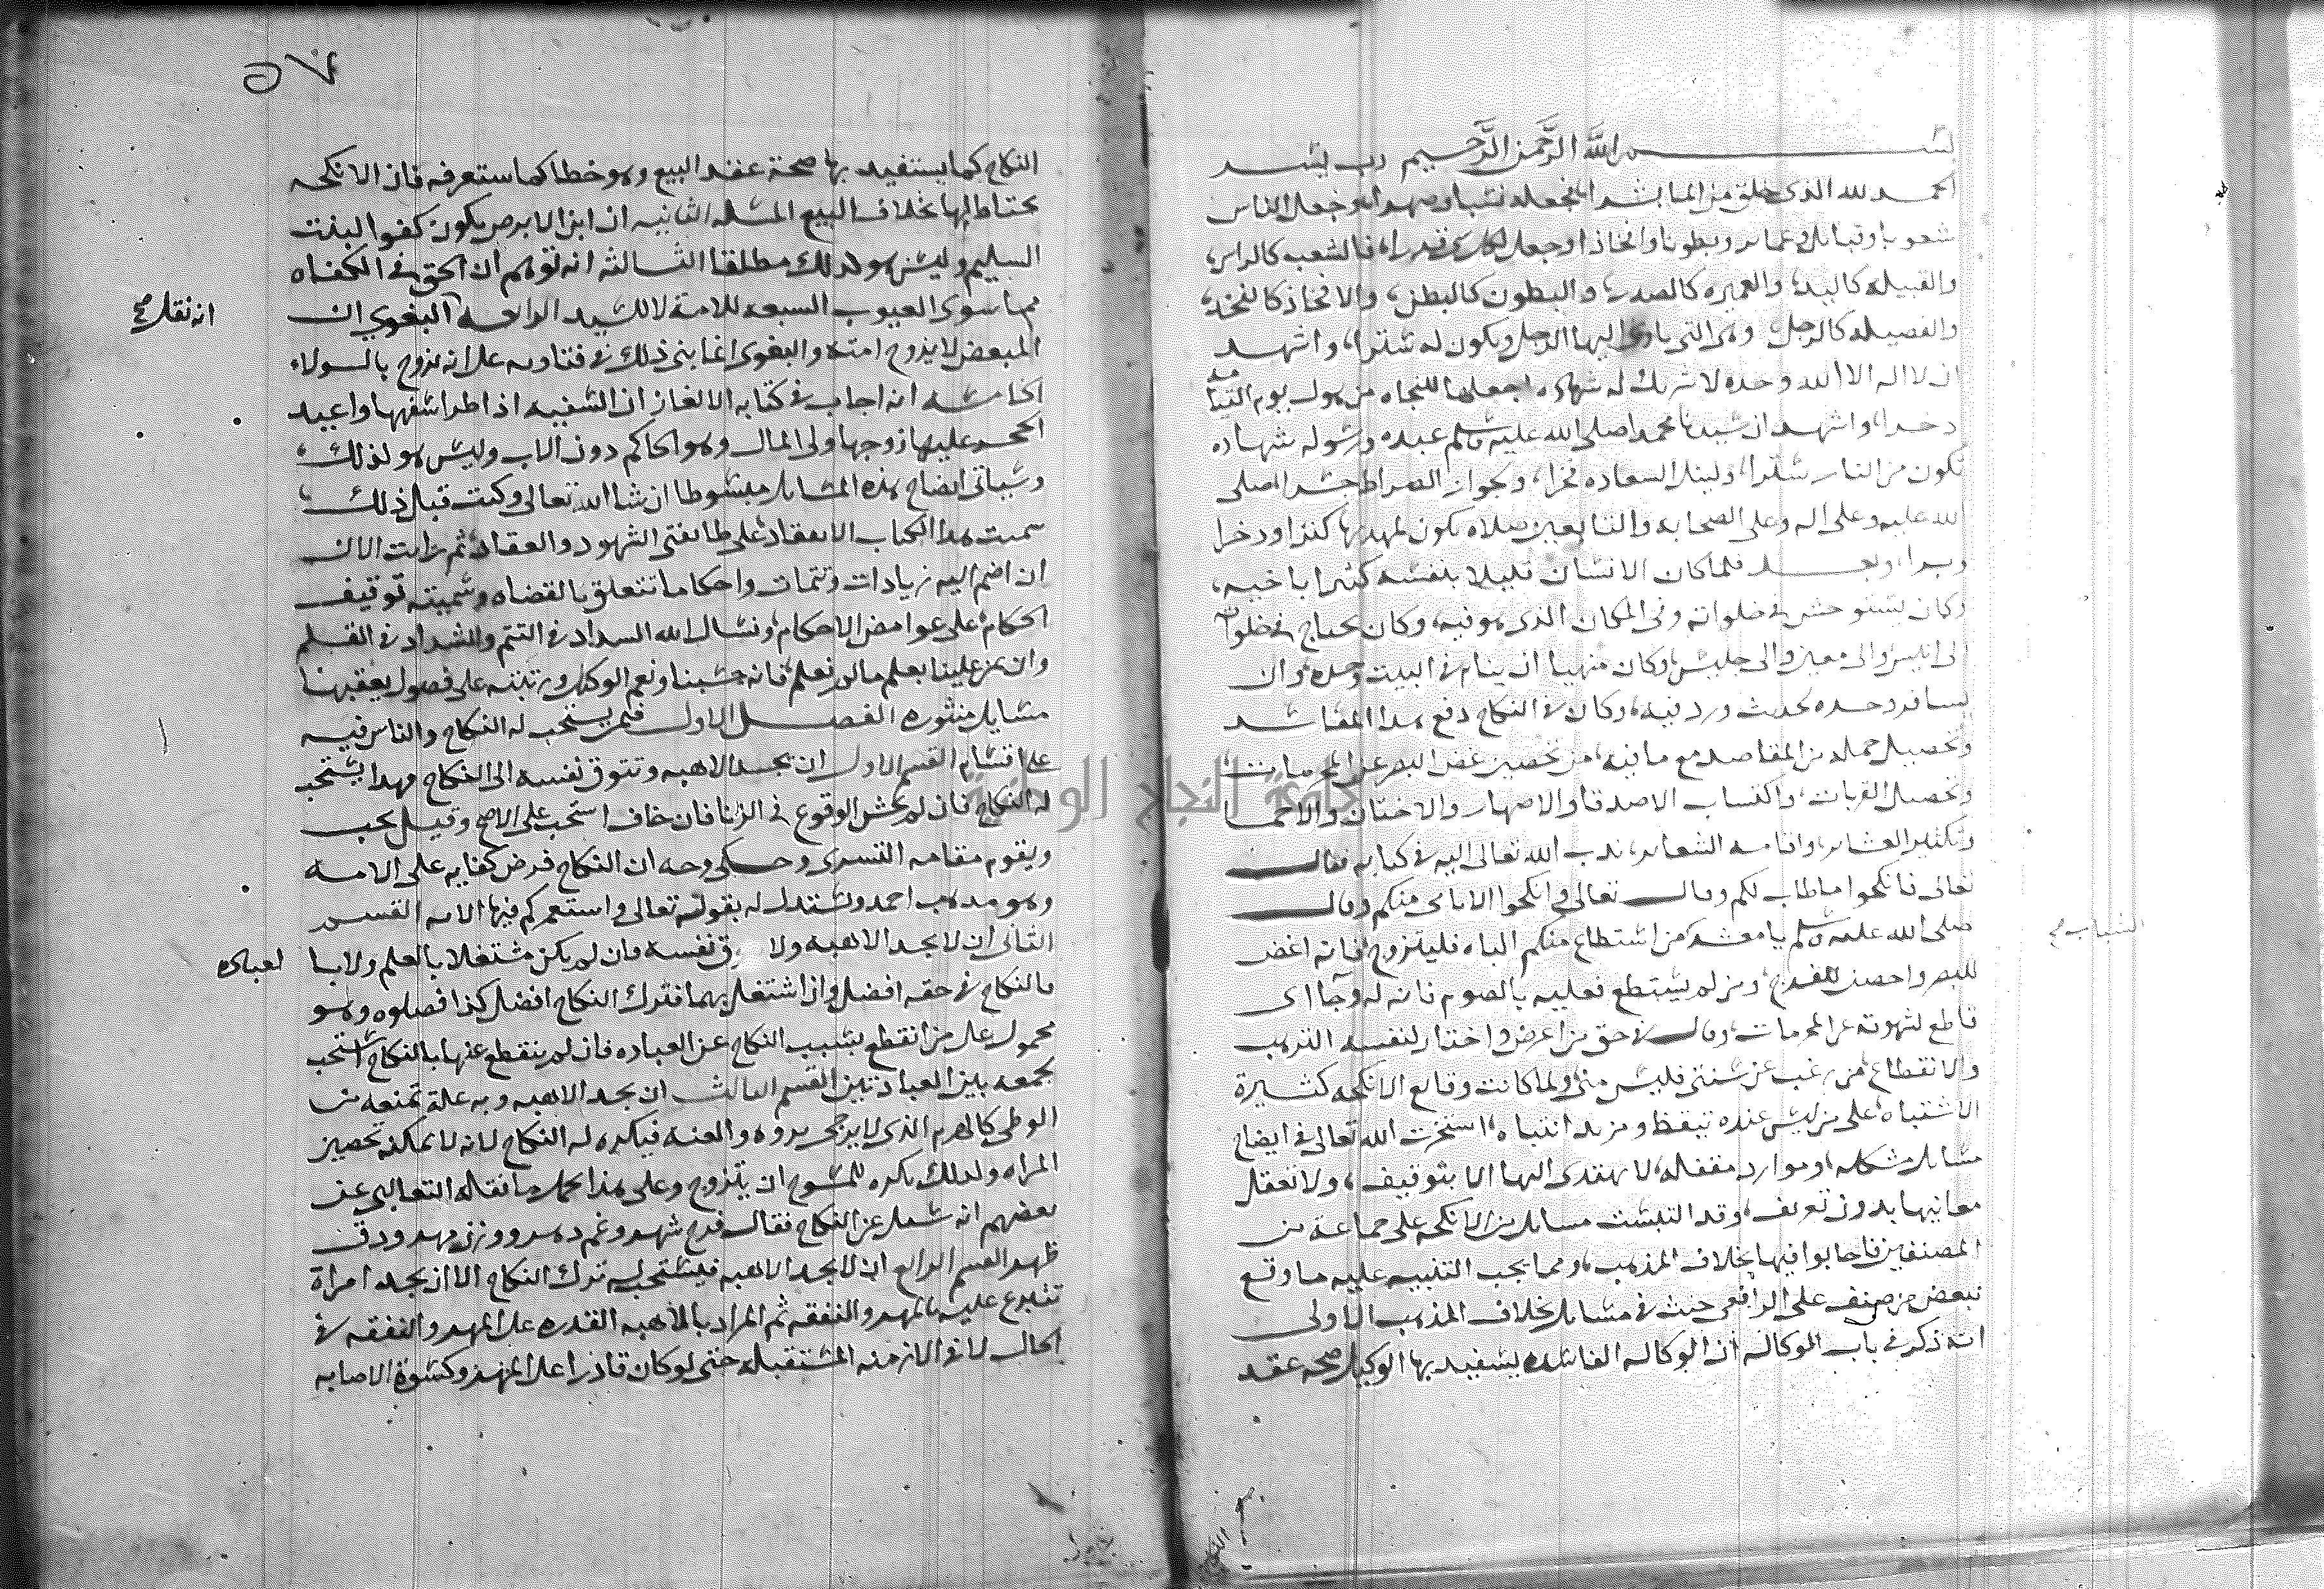 بسم الله الرحمن الرحيم رب يسر
الحمد لله الذى خلق من الما بشرا فجعله نسبا وصهرا وجعل الناس
شعوبا وقبايل وعماير وبطونا وافخاذا وجعل لكل قدرا، فالشعب كالراس،
والقبيله كاليد، والعميره كالصدر، والبطون كالبطن، والافخاذ كالفخذ،
والفصيله كالرجل، وهى التى ياوى اليها الرجل ويكون له سترا، واشهد
ان لا اله الا الله وحده لا شريك له شهاده اجعلها للنجاه من هول يوم القيامه
دخرا، واشهد ان سيدنا محمدا صلى الله عليه وسلم عبده ورسوله شهاده
تكون من النار سترا، ولنيل السعاده فخرا، وبجواز الصراط جسرا، صلى
الله عليه وعلى اله وعلى الصحابه والتابعين صلاه تكون لمهديها كنزا ودخرا
وبرا، وبعد فلما كان الانسان قليلا بنفسه كثيرا باخيه،
وكان يستوحش فى خلواته وفى المكان الذى هو فيه، وكان يحتاج فى خلواته
الى انيس والى معين والى جليس، وكان منهيا ان ينام فى البيت وحده، وان
يسافر وحده لحديث ورد فيه، وكان فى النكاح دفع هذا المفاسد
وتحصيل جمله من المقاصد مع ما فيه، من تحصين غض البصر عن المحرمات
وتحصيل القربات، واكتساب الاصدقا والاصهار والاختان والاحما
وتكثير العشاير، واقامه الشعاير، ندب الله تعالى اليه فى كتابه فقال
تعالى فانكحوا ما طاب لكم وقال تعالى وانكحوا الايامى منكم وقال
صلى الله عليه وسلم يا معشر من استطاع منكم الباه فليتزوج فانه اغض
الشباب صح
للبصر واحصن للفرج، ومن لم يستطع فعليه بالصوم فانه له وجآ اى
قاطع لشهوته عن المحرمات، وقال فى حق من اعرض واختار لنفسه الترهب
والانقطاع، من رغب عن سنتى فليس منى، ولما كانت وقايع الانكحه كثيرة
الاشتباه، على من ليس عنده تيقظ ومزيد انتباه، استخرت الله تعالى فى ايضاح
مسايل مشكله، وموارد مقفله، لا يهتدى اليها الا بتوقيف، ولا تعقل
معانيها بدون تعريف، وقد التبست مسايل من الانكحه على جماعة من
المصنفين فاجابوا فيها بخلاف المذهب، ومما يجب التنبيه عليه ما وقع
لبعض من صنف على الرافعى حيث فى مسايل بخلاف المذهب الاولى
انه ذكر فى باب الوكالة ان الوكاله الفاسده يستفيد بها الوكيل صحه عقد
النكاح كما يستفيد بها صحة عقد البيع وهو خطا كما ستعرفه فان الانكحه
يحتاط لها بخلاف البيع المسله الثانيه ان ابن الابرص يكون كفوا لبنت
السليم وليس هو كذلك مطلقا الثالثه انه توهم ان الحق فى الكفاه
مما سوى العيوب السبعه للامة لا للسيد الرابعه البغوي ان
انه نقل صح
المبعض لا يزوج امته والبغوى انما بنى ذلك فى فتاويه على انه يزوج بالولاء
الخامسه انه اجاب فى كتابه الالغاز ان السفيه اذا طرا سفهها واعيد
الحجر عليها زوجها ولى المال وهو الحاكم دون الاب وليس هو كذلك،
وسياتى ايضاح هذه المسايل مبسوطا ان شا الله تعالى وكنت قبل ذلك
سميت هذا الكتاب الانتقاد على طايفتى الشهود والعقاد، ثم رايت الان
ان اضم اليه زيادات وتتمات واحكاما تتعلق بالقضاه وسميته توقيف
الحكام، على غوامض الاحكام، ونسال الله السداد فى التتم والشداد فى القلم
وان يمن علينا بعلم ما لم نعلم، فانه حسبنا ونعم الوكيل ورتبته على فصول يعقبها
مسايل منثوره الفصل الاول فيمن يستحب له النكاح والناس فيه
على اقسام القسم الاول ان يجد الاهبه وتتوق نفسه الى النكاح فهذا يستحب
له النكاح فان لم يخش الوقوع فى الزنا فان خاف استحب على الاصح وقيل يجب
ويقوم مقامه التسرى وحكى وجه ان النكاح فرض كفايه على الامه
وهو مذهب احمد ويستدل له بقوله تعالى واستعمركم فيها الايه القسم
الثانى ان لا يجد الاهبه ولا نفسه فان لم يكن مشتغلا بالعلم ولا با
لعباده
فالنكاح فى حقه افضل وان اشتغل بهما فترك النكاح افضل كذا فصلوه وهو
محمول على من انقطع بسبب النكاح عن العباده فان لم ينقطع عنها بالنكاح استحب
لجمعه بين العبادتين القسم الثالث ان يجد الاهبه وبه علة تمنعه من
الوطى كالهرم الذى لا يرجى بروه والعنه فيكره له النكاح لانه لا يمكنه تحصين
المراه ولذلك يكره للمسوح ان يتزوج وعلى هذا يحمل ما نقله الثعالبى عن
بعضهم انه سيل عن النكاح فقال فرح شهر وغم دهر ووزن مهر ودق
ظهر القسم الرابع ان لا يجد الاهبه فيستحب له ترك النكاح الا ان يجد امراة
تتبرع عليه بالمهر والنفقه ثم المراد بالاهبه القدره على المهر والنفقه فى
الحال لا فى الازمنه المستقبله حتى لو كان قادرا على المهر وكسوة الاصابه
جامعة النجاح الوطنية